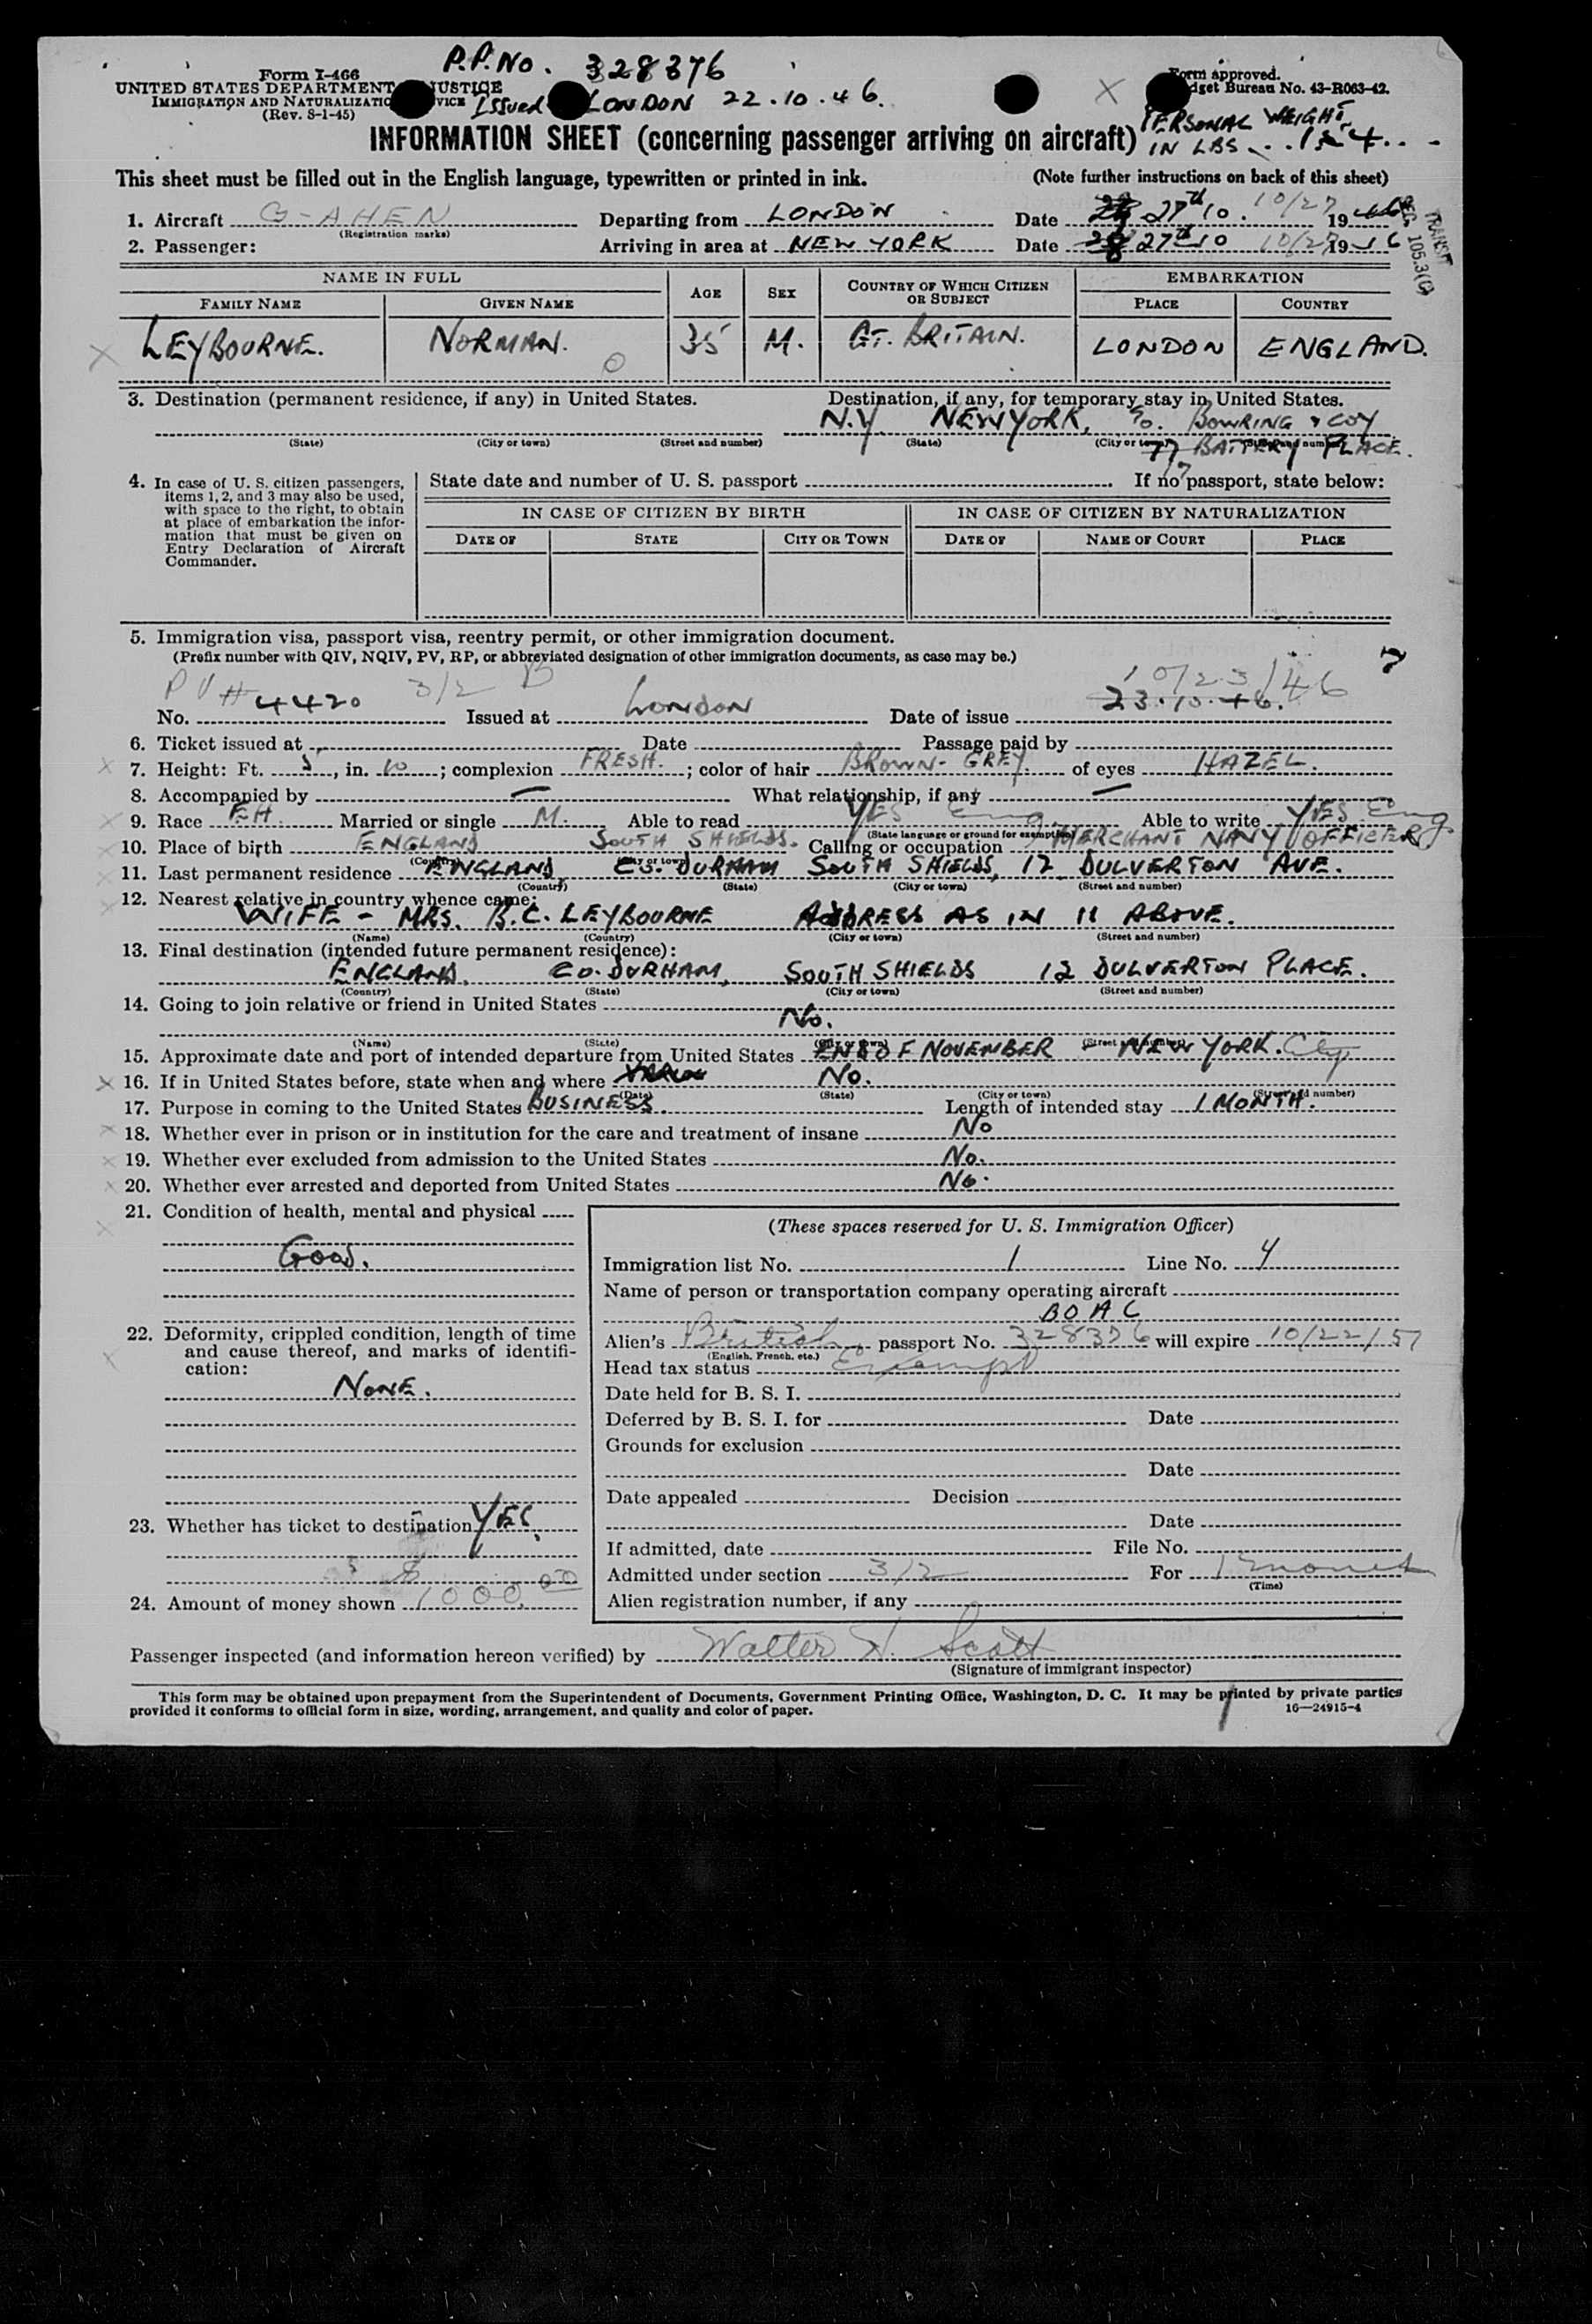 P.P. No. 328376
Form I-466
UNITED STATES DEPARTMENT JUSTICE
IMMIGRATION AND NATURALIZATIO VICE
Issued LONDON 22.10.46.
(Rev. 8-1-45)
Form approved.
dget Bureau No. 43-R063-42.
PERSONAL WEIGHT
IN LBS
INFORMATION SHEET (concerning passenger arriving on aircraft)
This sheet must be filled out in the English language, typewritten or printed in ink.
(Note further instructions on back of this sheet)
1. Aircraft G-AHEN Departing from LONDON Date 27th 10. 10/27 1946
(Registration marks)
2. Passenger: Arriving in area at NEW YORK Date 27th 10 10/27 19
TRANSIT
SEC. 105.3(C)
NAME IN FULL AGE SEX COUNTRY OF WHICH CITIZEN OR SUBJECT EMBARKATION
FAMILY NAME GIVEN NAME PLACE COUNTRY
LEYBOURNE. NORMAN. 35 M. GT. BRITAIN. LONDON ENGLAND.
3. Destination (permanent residence, if any) in United States. Destination, if any, for temporary stay in United States.
N.Y. NEW YORK, c/o. BOWRING & COY
(State) (City or town) (Street and number) (State) (City or town) (Street and number)
BATTERY PLACE.
17
4. In case of U. S. citizen passengers, items 1, 2, and 3 may also be used, with space to the right, to obtain at place of embarkation the information that must be given on Entry Declaration of Aircraft Commander.
State date and number of U. S. passport If no passport, state below:
IN CASE OF CITIZEN BY BIRTH IN CASE OF CITIZEN BY NATURALIZATION
DATE OF STATE CITY OR TOWN DATE OF NAME OF COURT PLACE
5. Immigration visa, passport visa, reentry permit, or other immigration document.
(Prefix number with QIV, NQIV, PV, RP, or abbreviated designation of other immigration documents, as case may be.)
PV # 3/2 B 10/23/46
No. 4420 Issued at LONDON Date of issue 23.10.46.
6. Ticket issued at Date Passage paid by
7. Height: Ft. 5, in. 10; complexion FRESH.; color of hair BROWN-GREY. of eyes HAZEL.
8. Accompanied by — What relationship, if any —
9. Race EH. Married or single M. Able to read YES Eng. Able to write YES Eng.
(State language or ground for exemption)
10. Place of birth ENGLAND SOUTH SHIELDS. Calling or occupation MERCHANT NAVY OFFICER
(Country) (City or town)
11. Last permanent residence ENGLAND, CO. DURHAM SOUTH SHIELDS, 12 DULVERTON AVE.
(Country) (State) (City or town) (Street and number)
12. Nearest relative in country whence came:
WIFE - MRS. B.C. LEYBOURNE ADDRESS AS IN 11 ABOVE.
(Name) (Country) (City or town) (Street and number)
13. Final destination (intended future permanent residence):
ENGLAND, CO. DURHAM, SOUTH SHIELDS 12 DULVERTON PLACE.
(Country) (State) (City or town) (Street and number)
14. Going to join relative or friend in United States
No.
(Name) (State) (City or town) (Street and number)
15. Approximate date and port of intended departure from United States END OF NOVEMBER NEW YORK. City
16. If in United States before, state when and where No.
(Date) (State) (City or town) (Street and number)
17. Purpose in coming to the United States BUSINESS. Length of intended stay 1 MONTH.
18. Whether ever in prison or in institution for the care and treatment of insane No
19. Whether ever excluded from admission to the United States No.
20. Whether ever arrested and deported from United States No.
21. Condition of health, mental and physical
GOOD.
22. Deformity, crippled condition, length of time and cause thereof, and marks of identification:
NONE.
23. Whether has ticket to destination YES.
24. Amount of money shown $ 1000.00
(These spaces reserved for U. S. Immigration Officer)
Immigration list No. 1 Line No. 4
Name of person or transportation company operating aircraft
BOAC
Alien's British passport No. 328376 will expire 10/22/51
(English, French, etc.)
Head tax status Exempt
Date held for B. S. I.
Deferred by B. S. I. for Date
Grounds for exclusion
Date
Date appealed Decision
Date
If admitted, date File No.
Admitted under section 3/2 For 1 month
(Time)
Alien registration number, if any
Passenger inspected (and information hereon verified) by Walter H. Scott
(Signature of immigrant inspector)
This form may be obtained upon prepayment from the Superintendent of Documents, Government Printing Office, Washington, D. C. It may be printed by private parties
provided it conforms to official form in size, wording, arrangement, and quality and color of paper. 16—24915-4